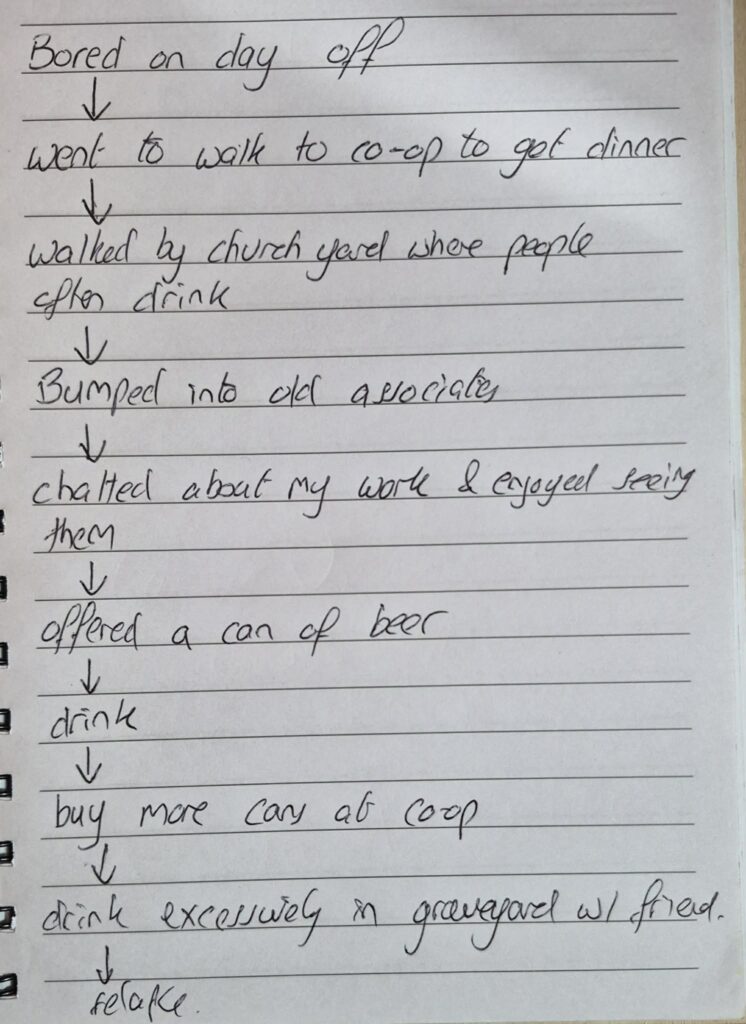 Bored on day off
↓
went to walk to co-op to get dinner
↓
walked by church yard where people
often drink
↓
Bumped into old associates
↓
chatted about my work & enjoyed seeing
them
↓
offered a can of beer
↓
drink
↓
buy more cans at co-op
↓
drink excessively in graveyard w/ friend.
↓
relapse.